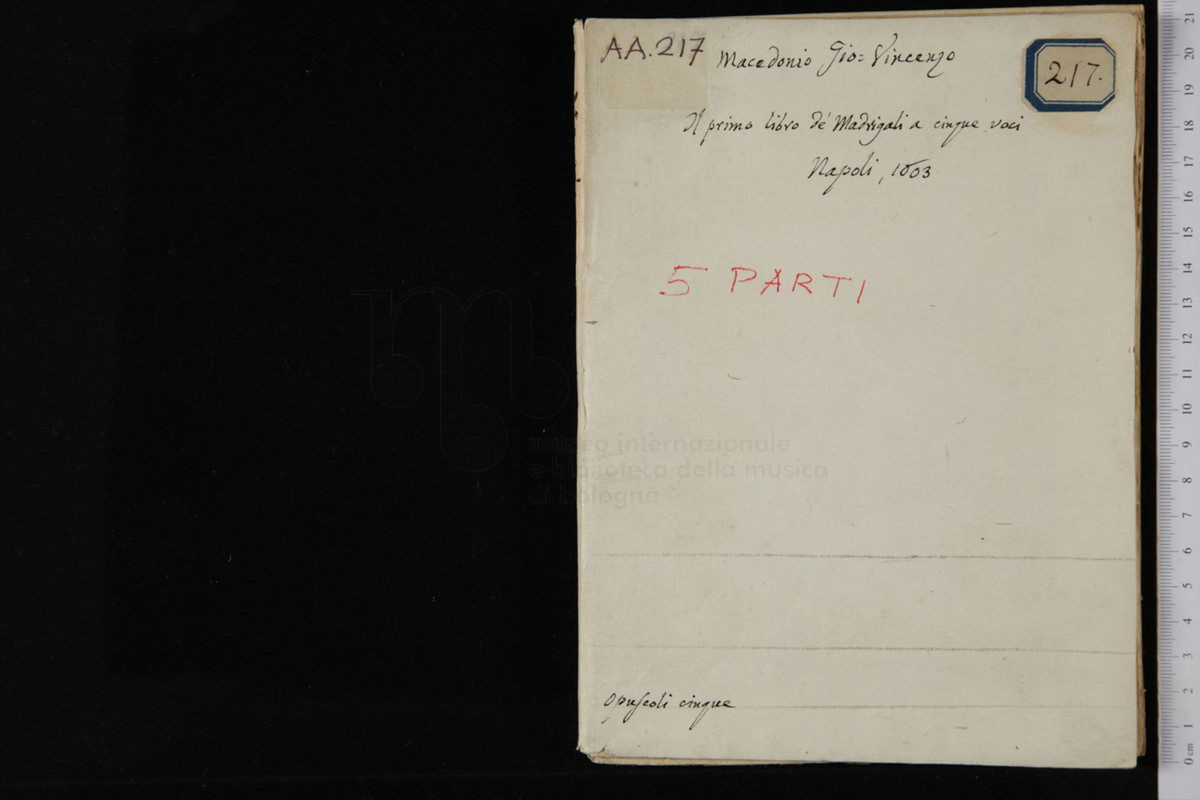 AA.217
Macedonio Gio= Vincenzo
217.
Il primo libro de' Madrigali a cinque voci
Napoli, 1603
5 PARTI
museo internazionale
e biblioteca della musica
di bologna
Opuscoli cinque
0 cm 1 2 3 4 5 6 7 8 9 10 11 12 13 14 15 16 17 18 19 20 21